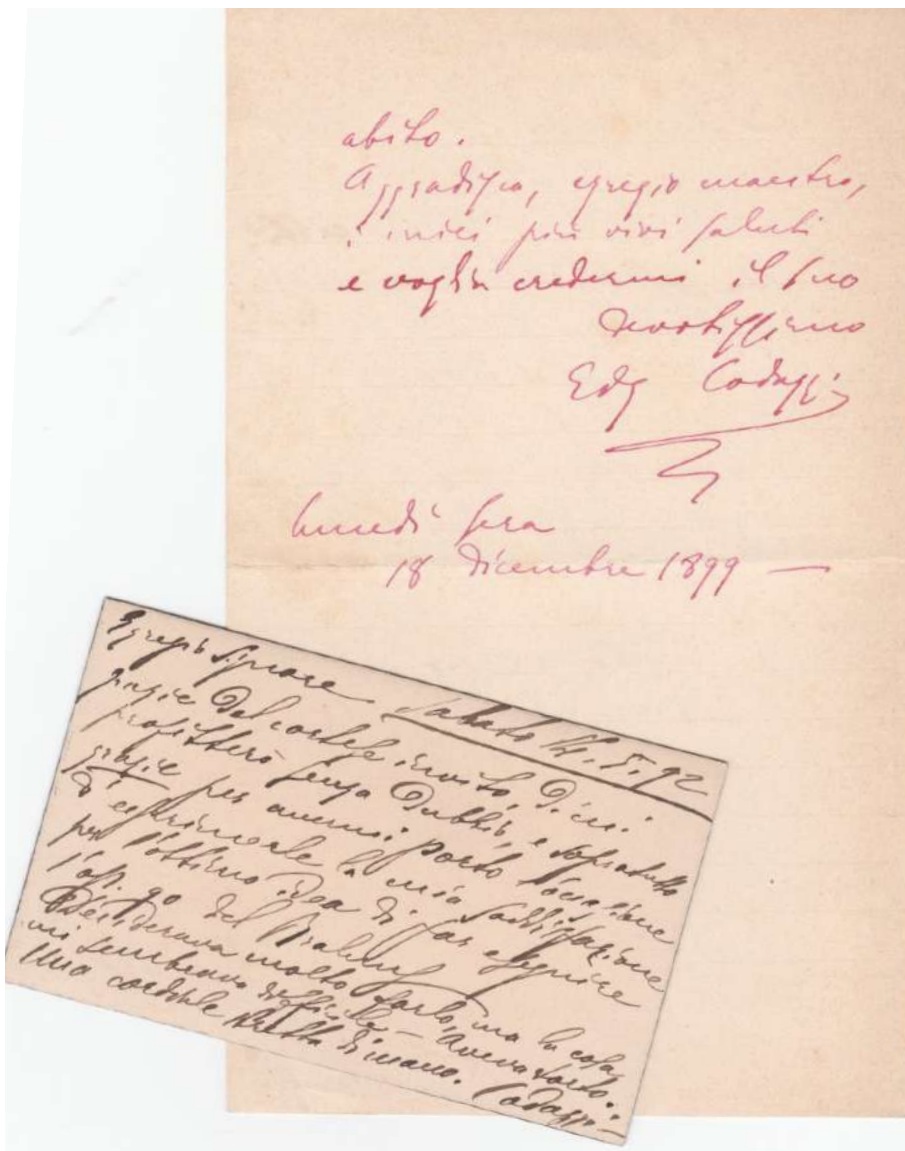 abito.
Aggradisca, egregio maestro,
i miei più vivi saluti
e voglia credermi il suo
devotissimo
Edg Codazzi
Lunedì sera
18 dicembre 1899 —
Egregio Signore Sabato 14.5.92
grazie del cortese invito, di cui
profitterò senza dubbio, e sopratutto
grazie per avermi porto l'occasione
di esprimerle la mia soddisfazione
per l'ottima idea di far eseguire
l'op. 90 del
Desiderava molto farlo, ma la cosa
mi sembrava difficile – aveva torto.
Una cordiale stretta di mano. Codazzi